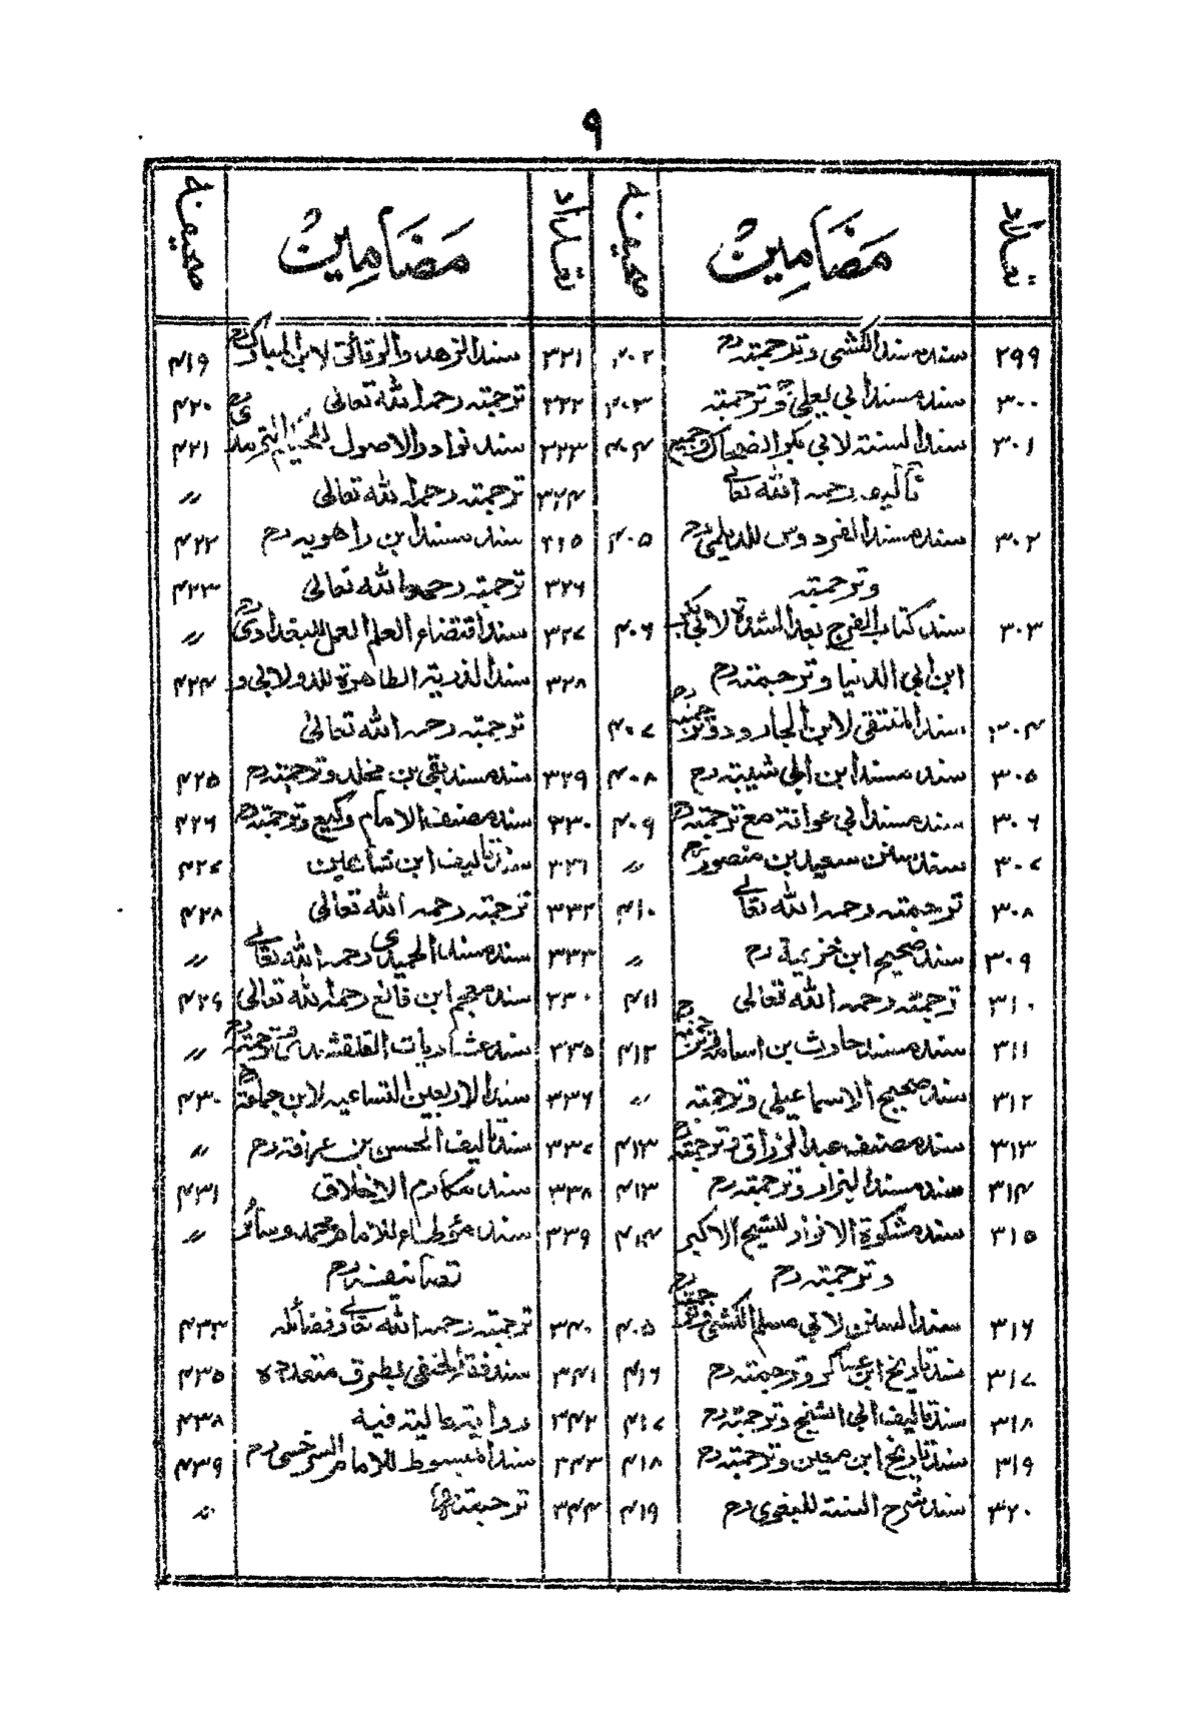 ٩
تعداد مضامین صحیفہ تعداد مضامین صحیفہ
٢٩٩ سند مسند الكشى وترجمته رح ٤٠٢
٣٠٠ سند مسند ابي يعلى رح وترجمته ٤٠٣
٣٠١ سند السنة لابي بكر الضحاك وجميع ٤٠٤
تأليفه رحمه الله تعالى
٣٠٢ سند مسند الفردوس للديلمي رح ٤٠٥
وترجمته
٣٠٣ سند كتاب الفرج بعد الشدة لابي بكر ٤٠٦
ابن ابي الدنيا وترجمته رح
٣٠٤ سند المنتقى لابن الجارود وترجمته رح ٤٠٧
٣٠٥ سند مسند ابن ابي شيبة رح ٤٠٨
٣٠٦ سند مسند ابي عوانة مع ترجمته رح ٤٠٩
٣٠٧ سند سنن سعيد بن منصور رح 〃
٣٠٨ ترجمته رحمه الله تعالى ٤١٠
٣٠٩ سند صحيح ابن خزيمة رح 〃
٣١٠ ترجمته رحمه الله تعالى ٤١١
٣١١ سند مسند حارث بن اسامة وترجمته رح ٤١٢
٣١٢ سند صحيح الاسماعيلي وترجمته 〃
٣١٣ سند مصنف عبد الرزاق وترجمته رح ٤١٣
٣١٤ سند مسند البزار وترجمته رح ٤١٣
٣١٥ سند مشكوة الانوار للشيخ الاكبر ٤١٤
وترجمته رح
٣١٦ سند السنن لابي مسلم الكشي وترجمته رح ٤٠٥
٣١٧ سند تاريخ ابن عساكر وترجمته رح ٤١٦
٣١٨ سند تاليف ابي الشيخ وترجمته رح ٤١٧
٣١٩ سند تاريخ ابن معين وترجمته رح ٤١٨
٣٢٠ سند شرح السنة للبغوي رح ٤١٩
٣٢١ سند الزهد والرقائق لابن المبارك رح ٤١٩
٣٢٢ ترجمته رحمه الله تعالى ٤٢٠
٣٢٣ سند نوادر الاصول للحكيم الترمذي رح ٤٢١
٣٢٤ ترجمته رحمه الله تعالى 〃
٣٢٥ سند مسند ابن راهويه رح ٤٢٢
٣٢٦ ترجمته رحمه الله تعالى ٤٢٣
٣٢٧ سند اقتضاء العلم العمل للبغدادي رح 〃
٣٢٨ سند الذرية الطاهرة للدولابي و ٤٢٤
ترجمته رحمه الله تعالى
٣٢٩ سند مسند بقي بن مخلد وترجمته رح ٤٢٥
٣٣٠ سند مصنف الامام وكيع وترجمته رح ٤٢٦
٣٣١ سند تاليف ابن شاهين ٤٢٧
٣٣٢ ترجمته رحمه الله تعالى ٤٢٨
٣٣٣ سند مسند الحميدي رحمه الله تعالى 〃
٢٣٠ سند معجم ابن قانع رحمه الله تعالى ٤٢٩
٣٣٥ سند عشاريات القلقشندي وترجمته رح 〃
٣٣٦ سند الاربعين التساعيه لابن جماعة رح ٤٣٠
٣٣٧ سند تاليف الحسن بن عرفة رح 〃
٣٣٨ سند مكارم الاخلاق ٤٣١
٣٣٩ سند مؤطاء للامام محمد وسائر 〃
تصانيفه رح
٣٤٠ ترجمته رحمه الله تعالى وفضائله ٤٣٣
٣٤١ سند فقه الحنفي بطرق متعدده ٤٣٥
٣٤٢ رواية عالية فيه ٤٣٨
٣٤٣ سند المبسوط للامام السرخسي رح ٤٣٩
٣٤٤ ترجمته رح 〃